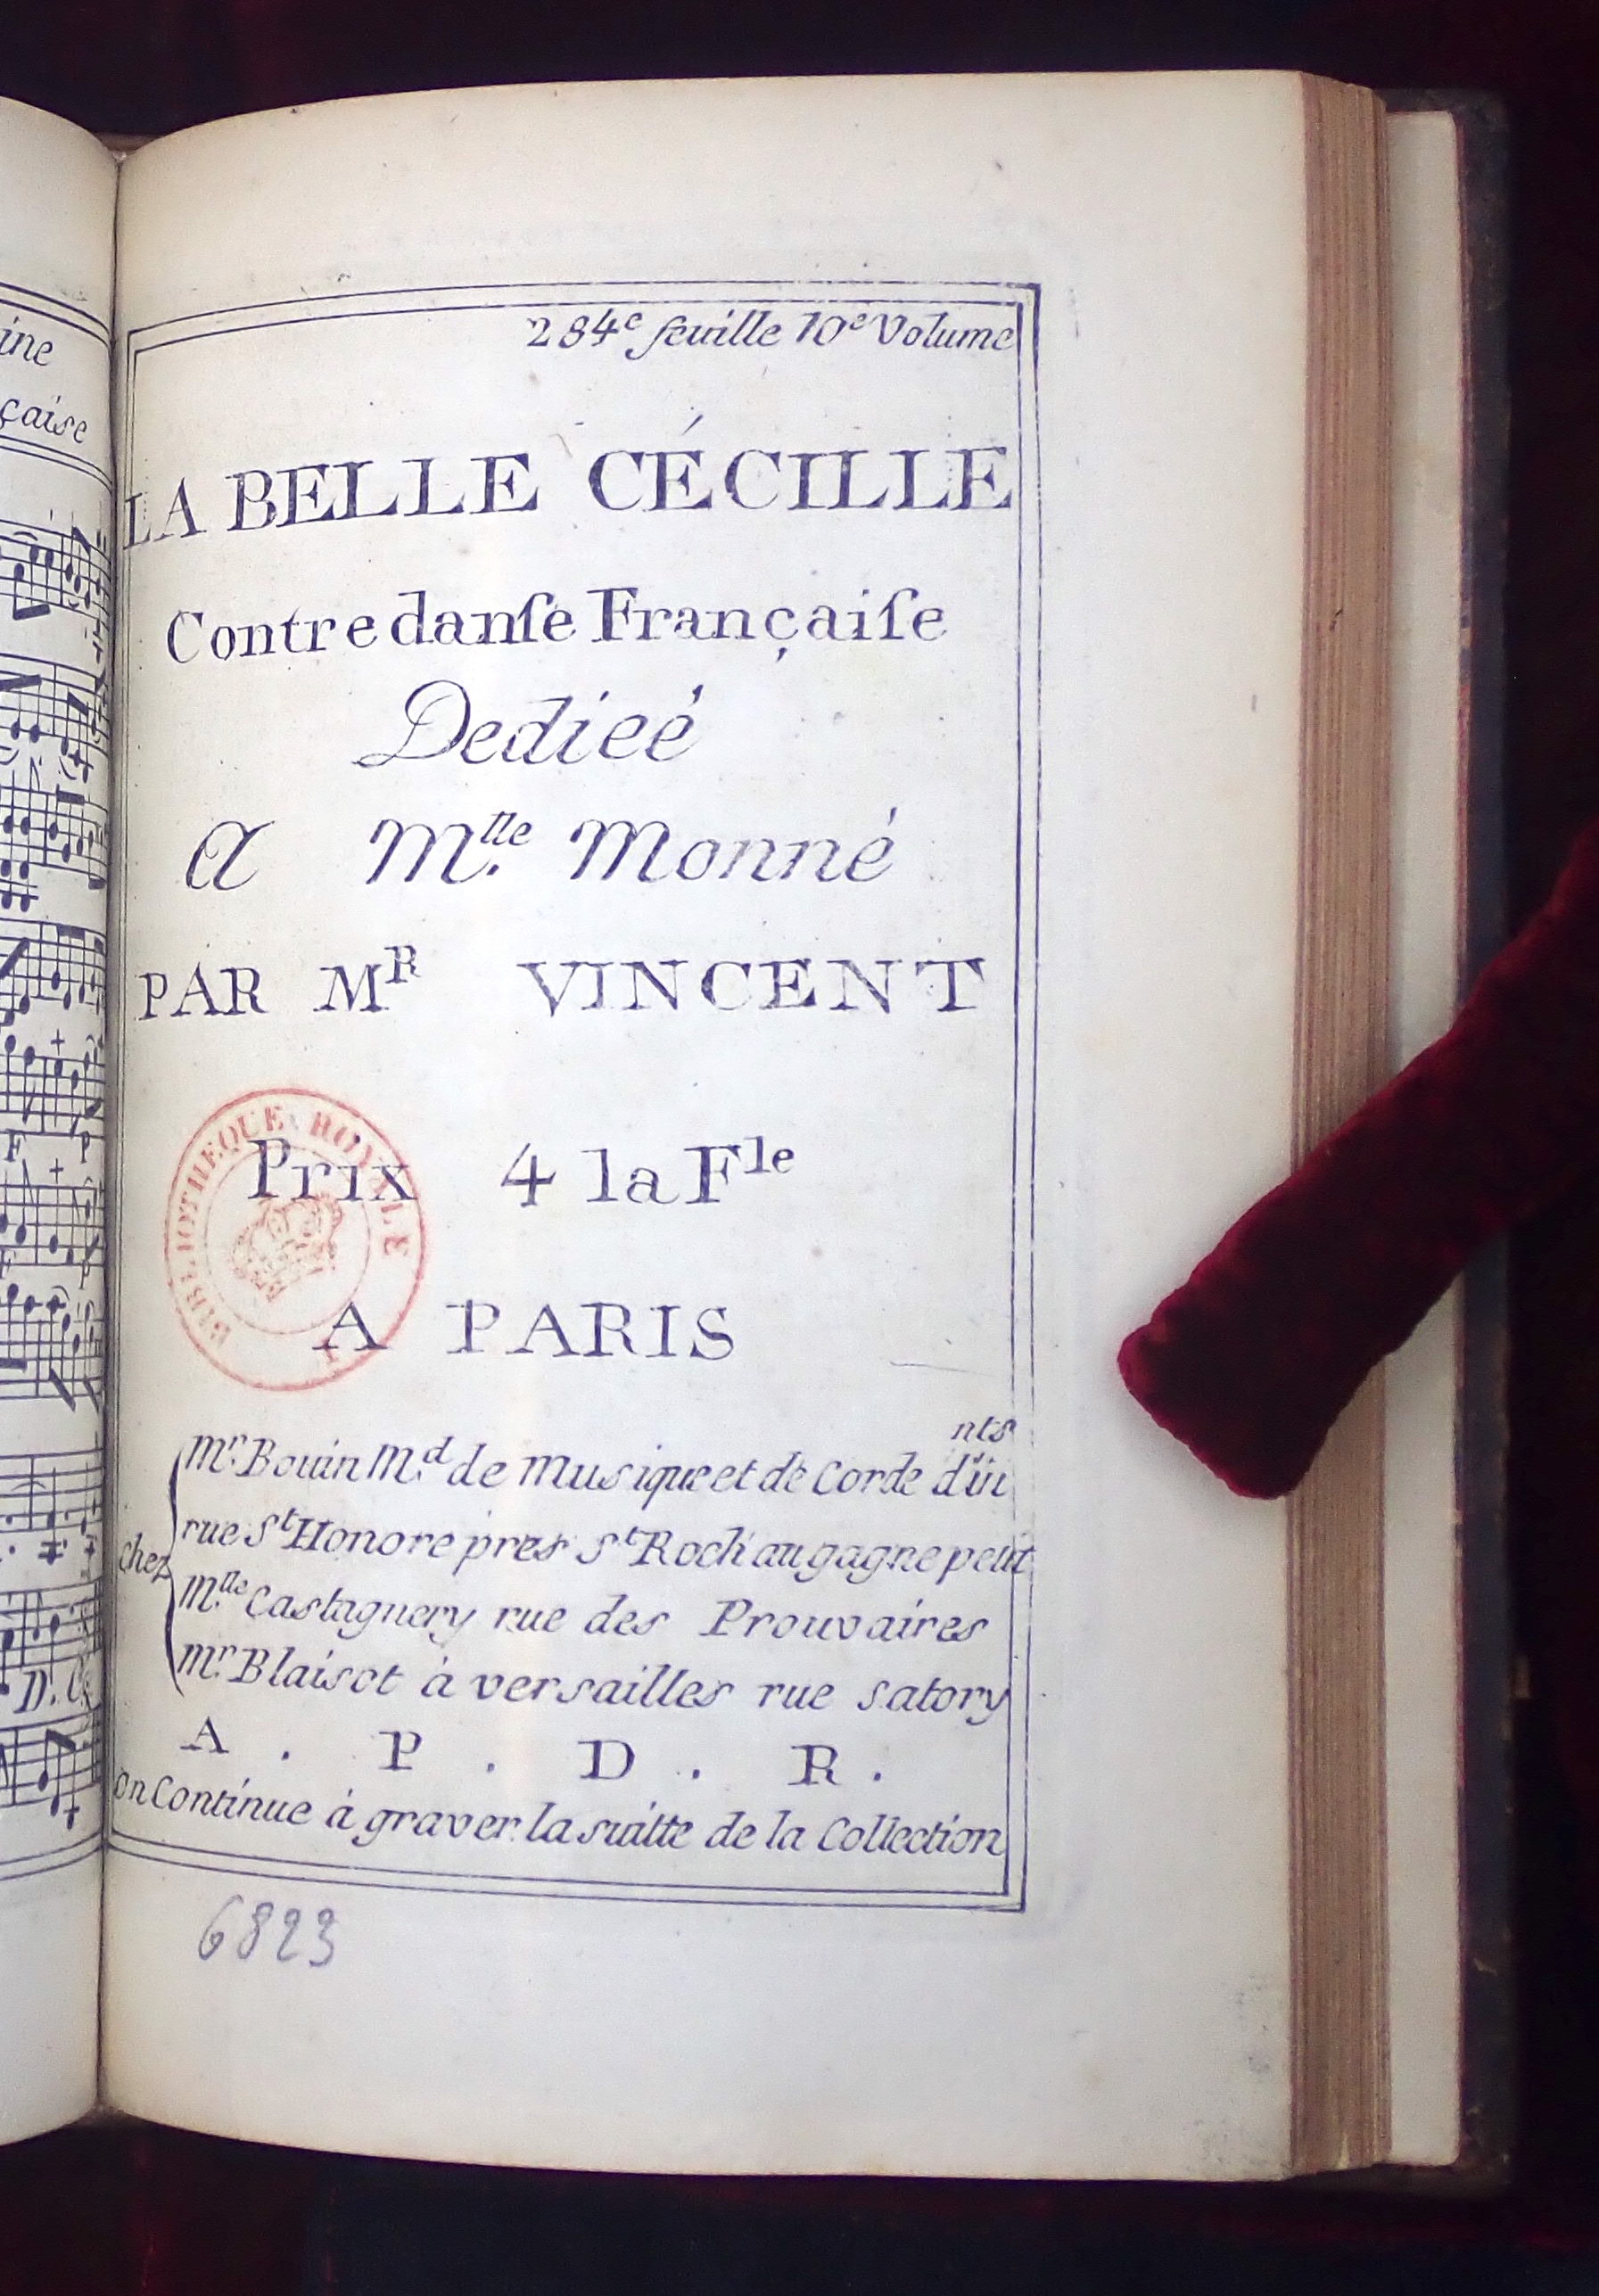 ine
çaise
D. C.
284e feuille 10e Volume
LA BELLE CÉCILLE
Contredanſe Françaiſe
Dedieé
A Mlle. Monné
PAR MR VINCENT
BIBLIOTHEQUE ROYALE
Prix 4 la Fle
A PARIS
nts
Mr. Bouin Md. de Musique et de Corde d'in
rue St Honore pres St Roch au gagne petit
chez
Mlle. Castagnery rue des Prouvaires
Mr. Blaisot à versailles rue satory
A . P . D . R .
on Continue à graver la suitte de la Collection
6823